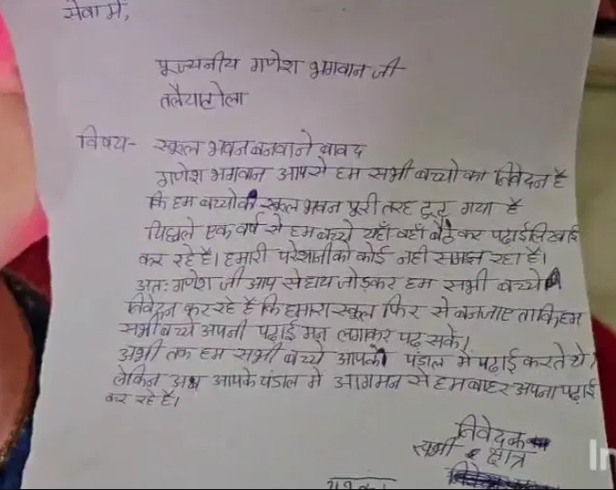 सेवा में,
पूज्यनीय गणेश भगवान जी
तलैयाटोला
विषय- स्कूल भवन बनवाने बावद
गणेश भगवान आपसे हम सभी बच्चो का निवेदन है
कि हम बच्चोकी स्कूल भवन पूरी तरह टूट गया है
पिछले एक वर्ष से हम बच्चे यहाँ वहाँ बैठ कर पढ़ाई लिखाई
कर रहे है। हमारी परेशानी को कोई नही समझ रहा है।
अतः गणेश जी आप से हाथ जोड़कर हम सभी बच्चे
निवेदन कर रहे है कि हमारा स्कूल फिर से बनजाए ताकि हम
सभी बच्चे अपनी पढ़ाई मन लगाकर पढ़ सके।
अभी तक हम सभी बच्चे आपके पंडाल मे पढ़ाई करते थे।
लेकिन अब आपके पंडाल मे आगमन से हम बाहर अपना पढ़ाई
कर रहे है।
निवेदक
सभी छात्र
In